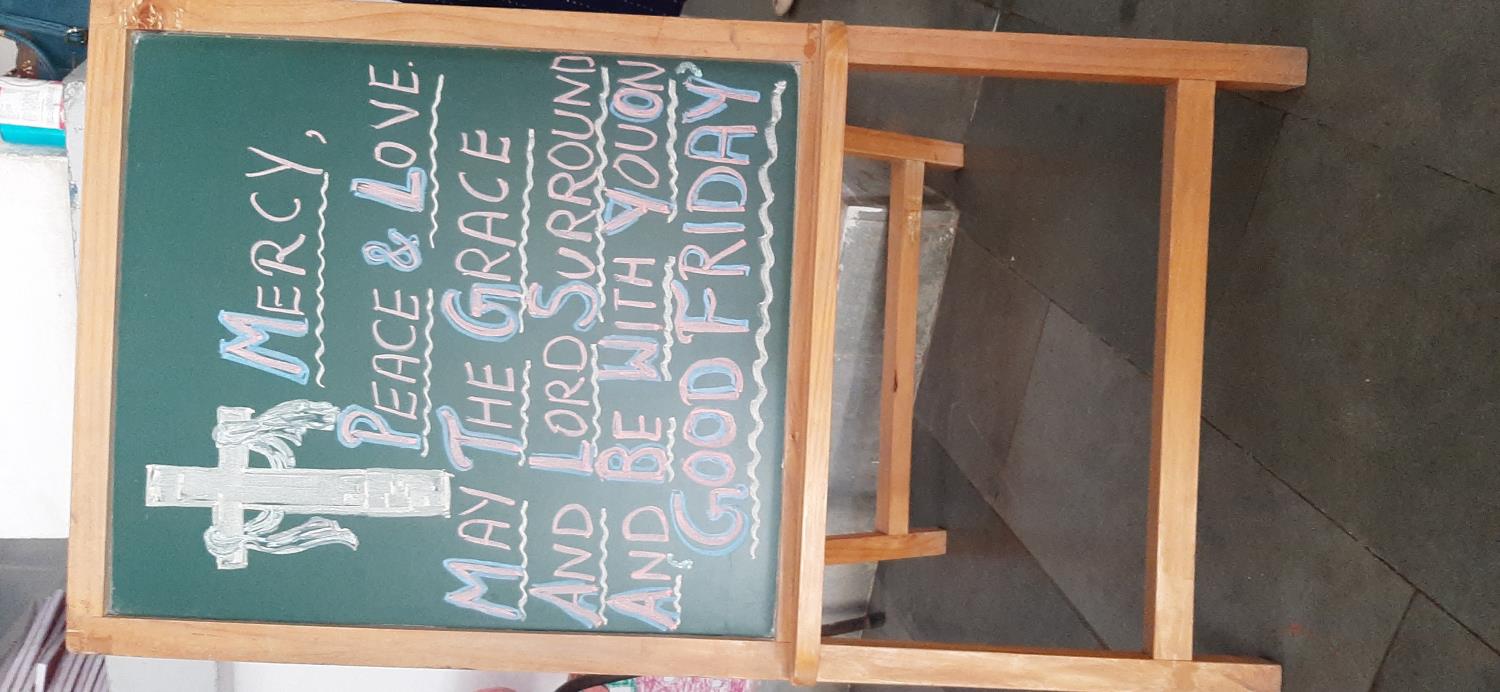 MERCY,
PEACE & LOVE.
MAY THE GRACE
AND LORD SURROUND
AND BE WITH YOU ON
"GOOD FRIDAY"